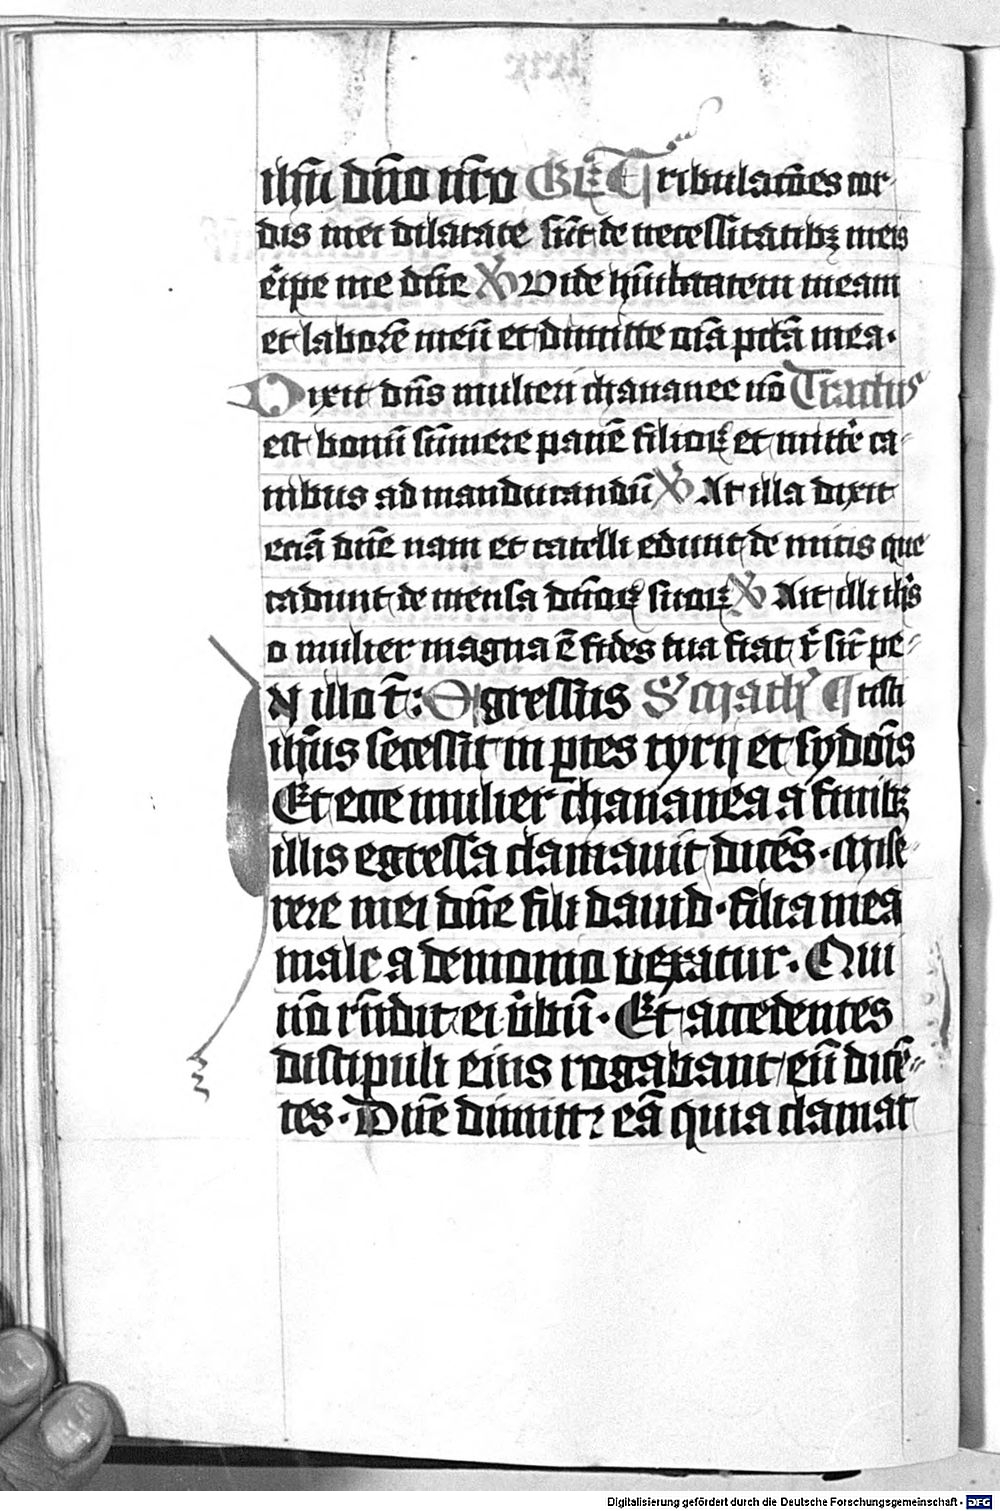 ihū dn̄o nr̄o Gr̄ Tribulac̄oes cor-
dis mei dilatate sūt de necessitatibꝫ meis
eripe me dn̄e V̄ Vide hūilitatem meam
et laborē meū et dimitte oīa pctā mea.
Dixit dn̄s mulieri chananee nō Tractus
est bonū sumere panē filioꝝ et mittere ca-
nibus ad manducandū V̄ At illa dixit
eciā dn̄e nam et catelli edunt de micis que
cadunt de mensa dn̄oꝝ suoꝝ V̄ Ait illi ihs̄
o mulier magna ē fides tua fiat t̄ sic̄ pe-
N illo t̄: Egressus tisti
ihūs secessit in ꝑtes tyrij et sydois̄
Et ecce mulier chananea a finibꝫ
illis egressa clamauit dicēs. Mise-
rere mei dn̄e fili dauid. filia mea
male a demonio vexatur. Qui
nō rn̄dit ei v̄bū. Et accedentes
discipuli eius rogabant eū dicē-
tes. Dn̄e dimitte eā quia clamat
Digitalisierung gefördert durch die Deutsche Forschungsgemeinschaft - DFG